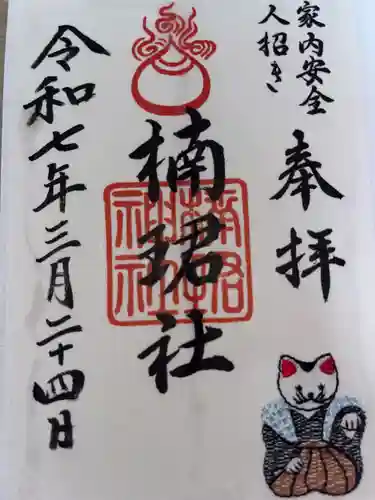 家内安全
人招き
奉拝
楠珺社
楠珺社神社
令和七年三月二十四日